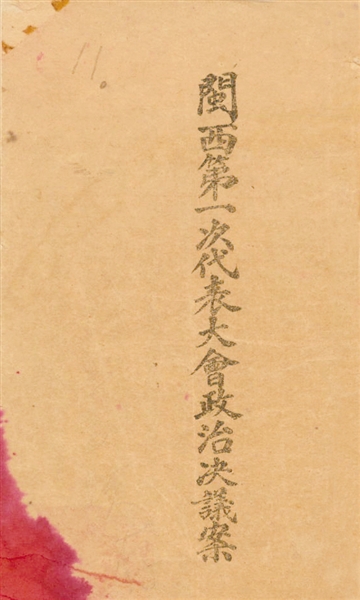 閩西第一次代表大會政治决議案
11。